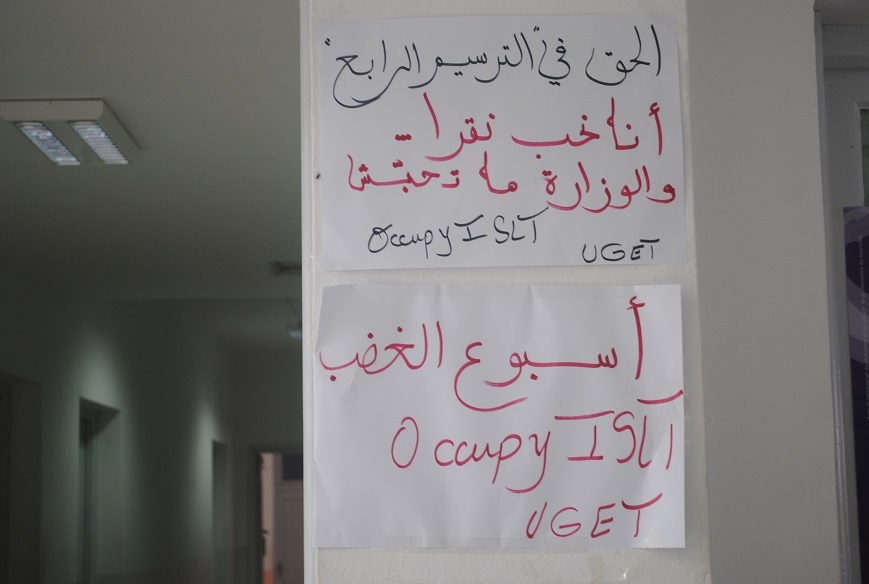 الحق في "الترسيم الرابع"
أنا نحب نقرا ...
والوزارة ما تحبّش
Occupy ISLT
UGET
أسبوع الغضب
Occupy ISLT
UGET